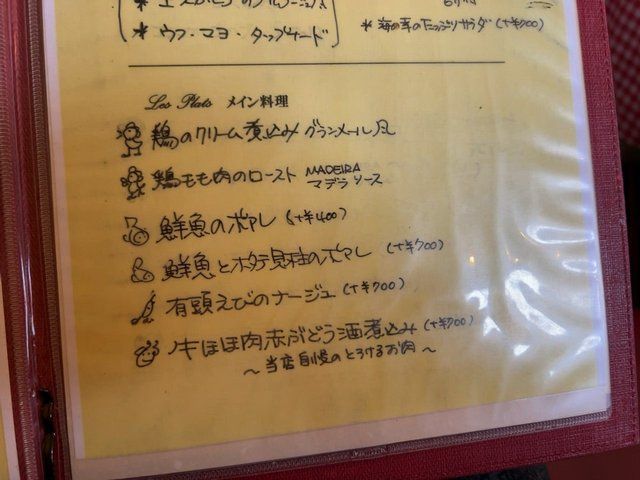 * ウフ・マヨ・タップナード
* 海の幸のたっぷりサラダ (+¥700)
Les Plats メイン料理
鶏のクリーム煮込み グランメール風
鶏モモ肉のロースト MADEIRA マデラソース
鮮魚のポワレ (+¥400)
鮮魚とホタテ貝柱のポワレ (+¥700)
有頭えびのナージュ (+¥700)
牛ほほ肉赤ぶどう酒煮込み (+¥700)
～当店自慢のとろけるお肉～